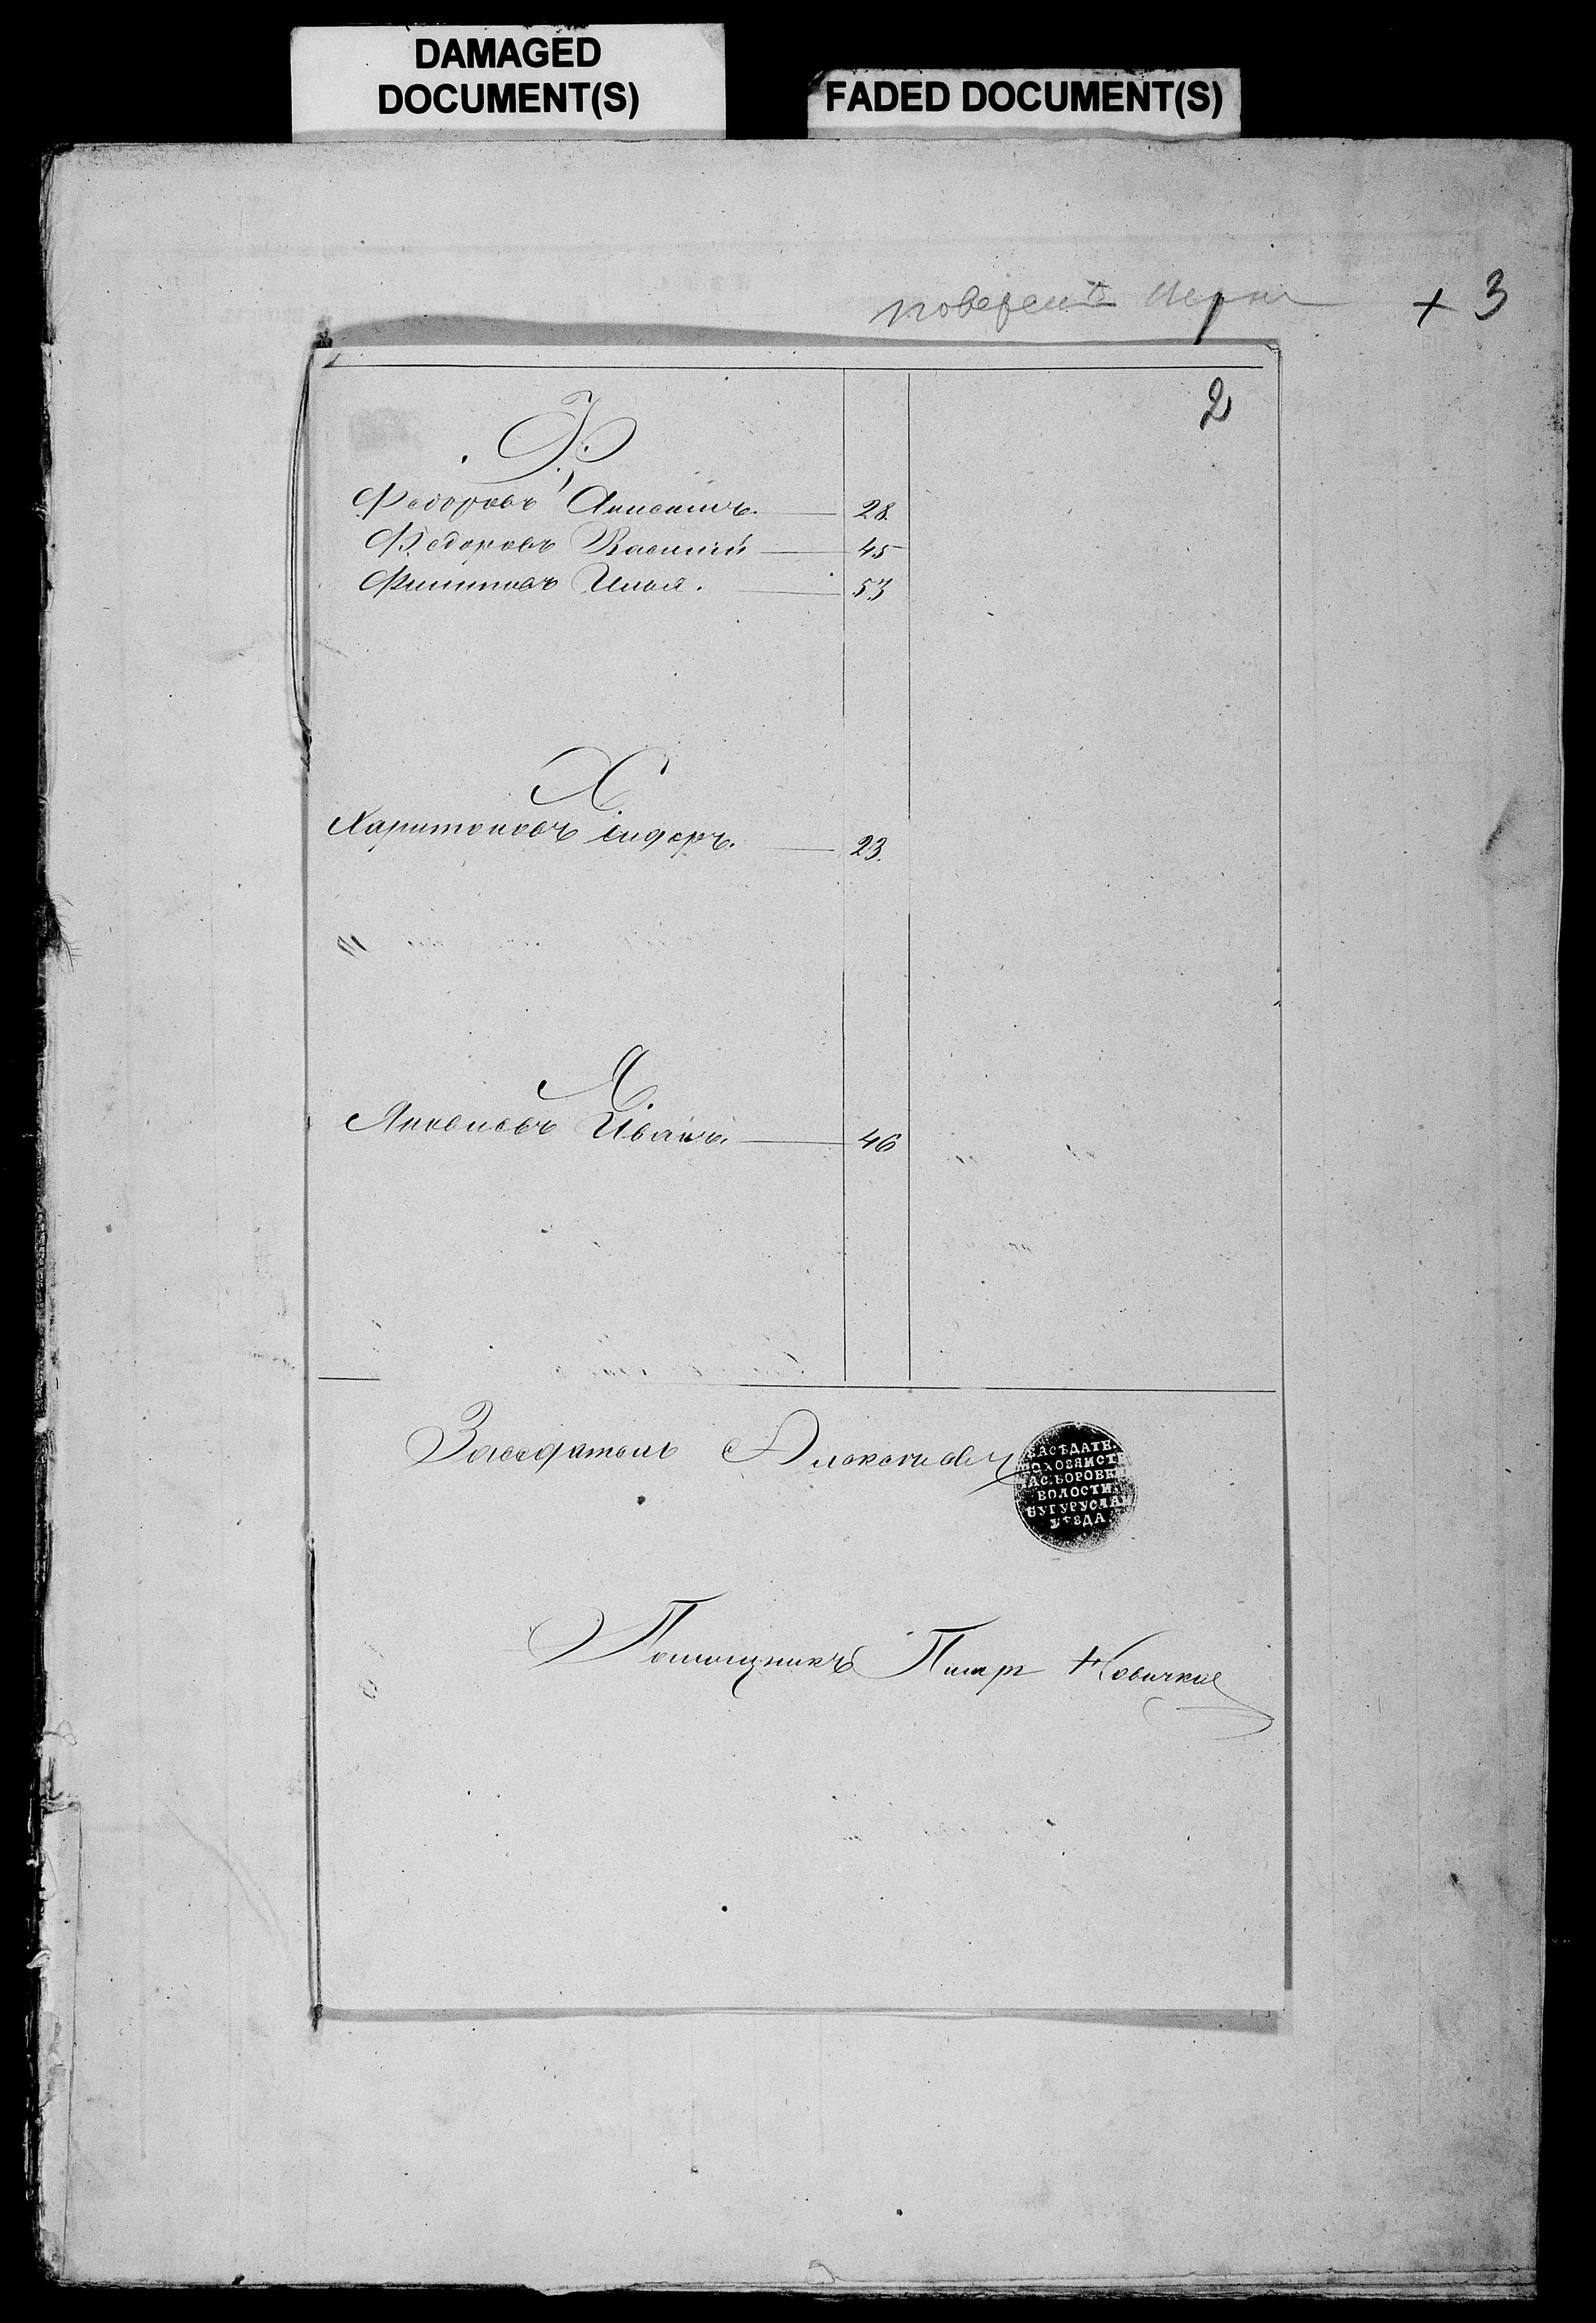 DAMAGED
DOCUMENT(S)
FADED DOCUMENT(S)
+ 3
2
Ф.
Федоровъ Анисимъ. 28.
Федоровъ Василий 45
Филиповъ Илья. 53
Х
Харитоновъ Сидоръ. 23.
Я.
Яковлевъ Иванъ. 46
Заседатель Алексеевъ
ЗАСѢДАТЕ.
ПОХОЗЯИСТ
ЧАС. БОРОВК
ВОЛОСТИ
БУГУРУСЛАН
УѢЗДА
Помощникъ Петръ